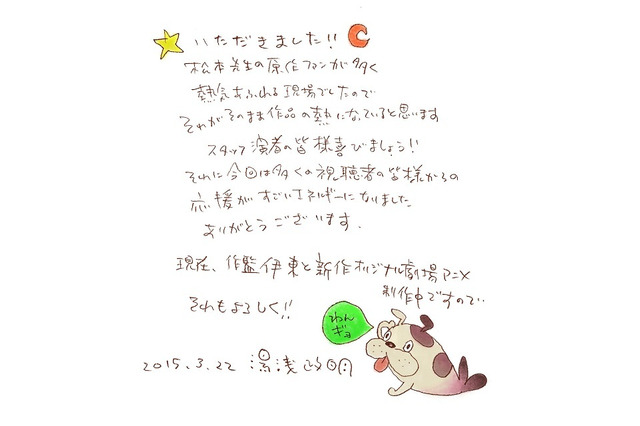 いただきました!!
松本先生の原作ファンが多く
熱気あふれる現場でしたので
それがそのまま作品の熱になっていると思います
スタッフ演者の皆様喜びましょう!!
それに今回は多くの視聴者の皆様からの
応援がすごいエネルギーになりました
ありがとうございます.
現在、作監伊東と新作オリジナル劇場アニメ
制作中ですので…
それもよろしく!!
わん
ギョ
2015.3.22 湯浅政明